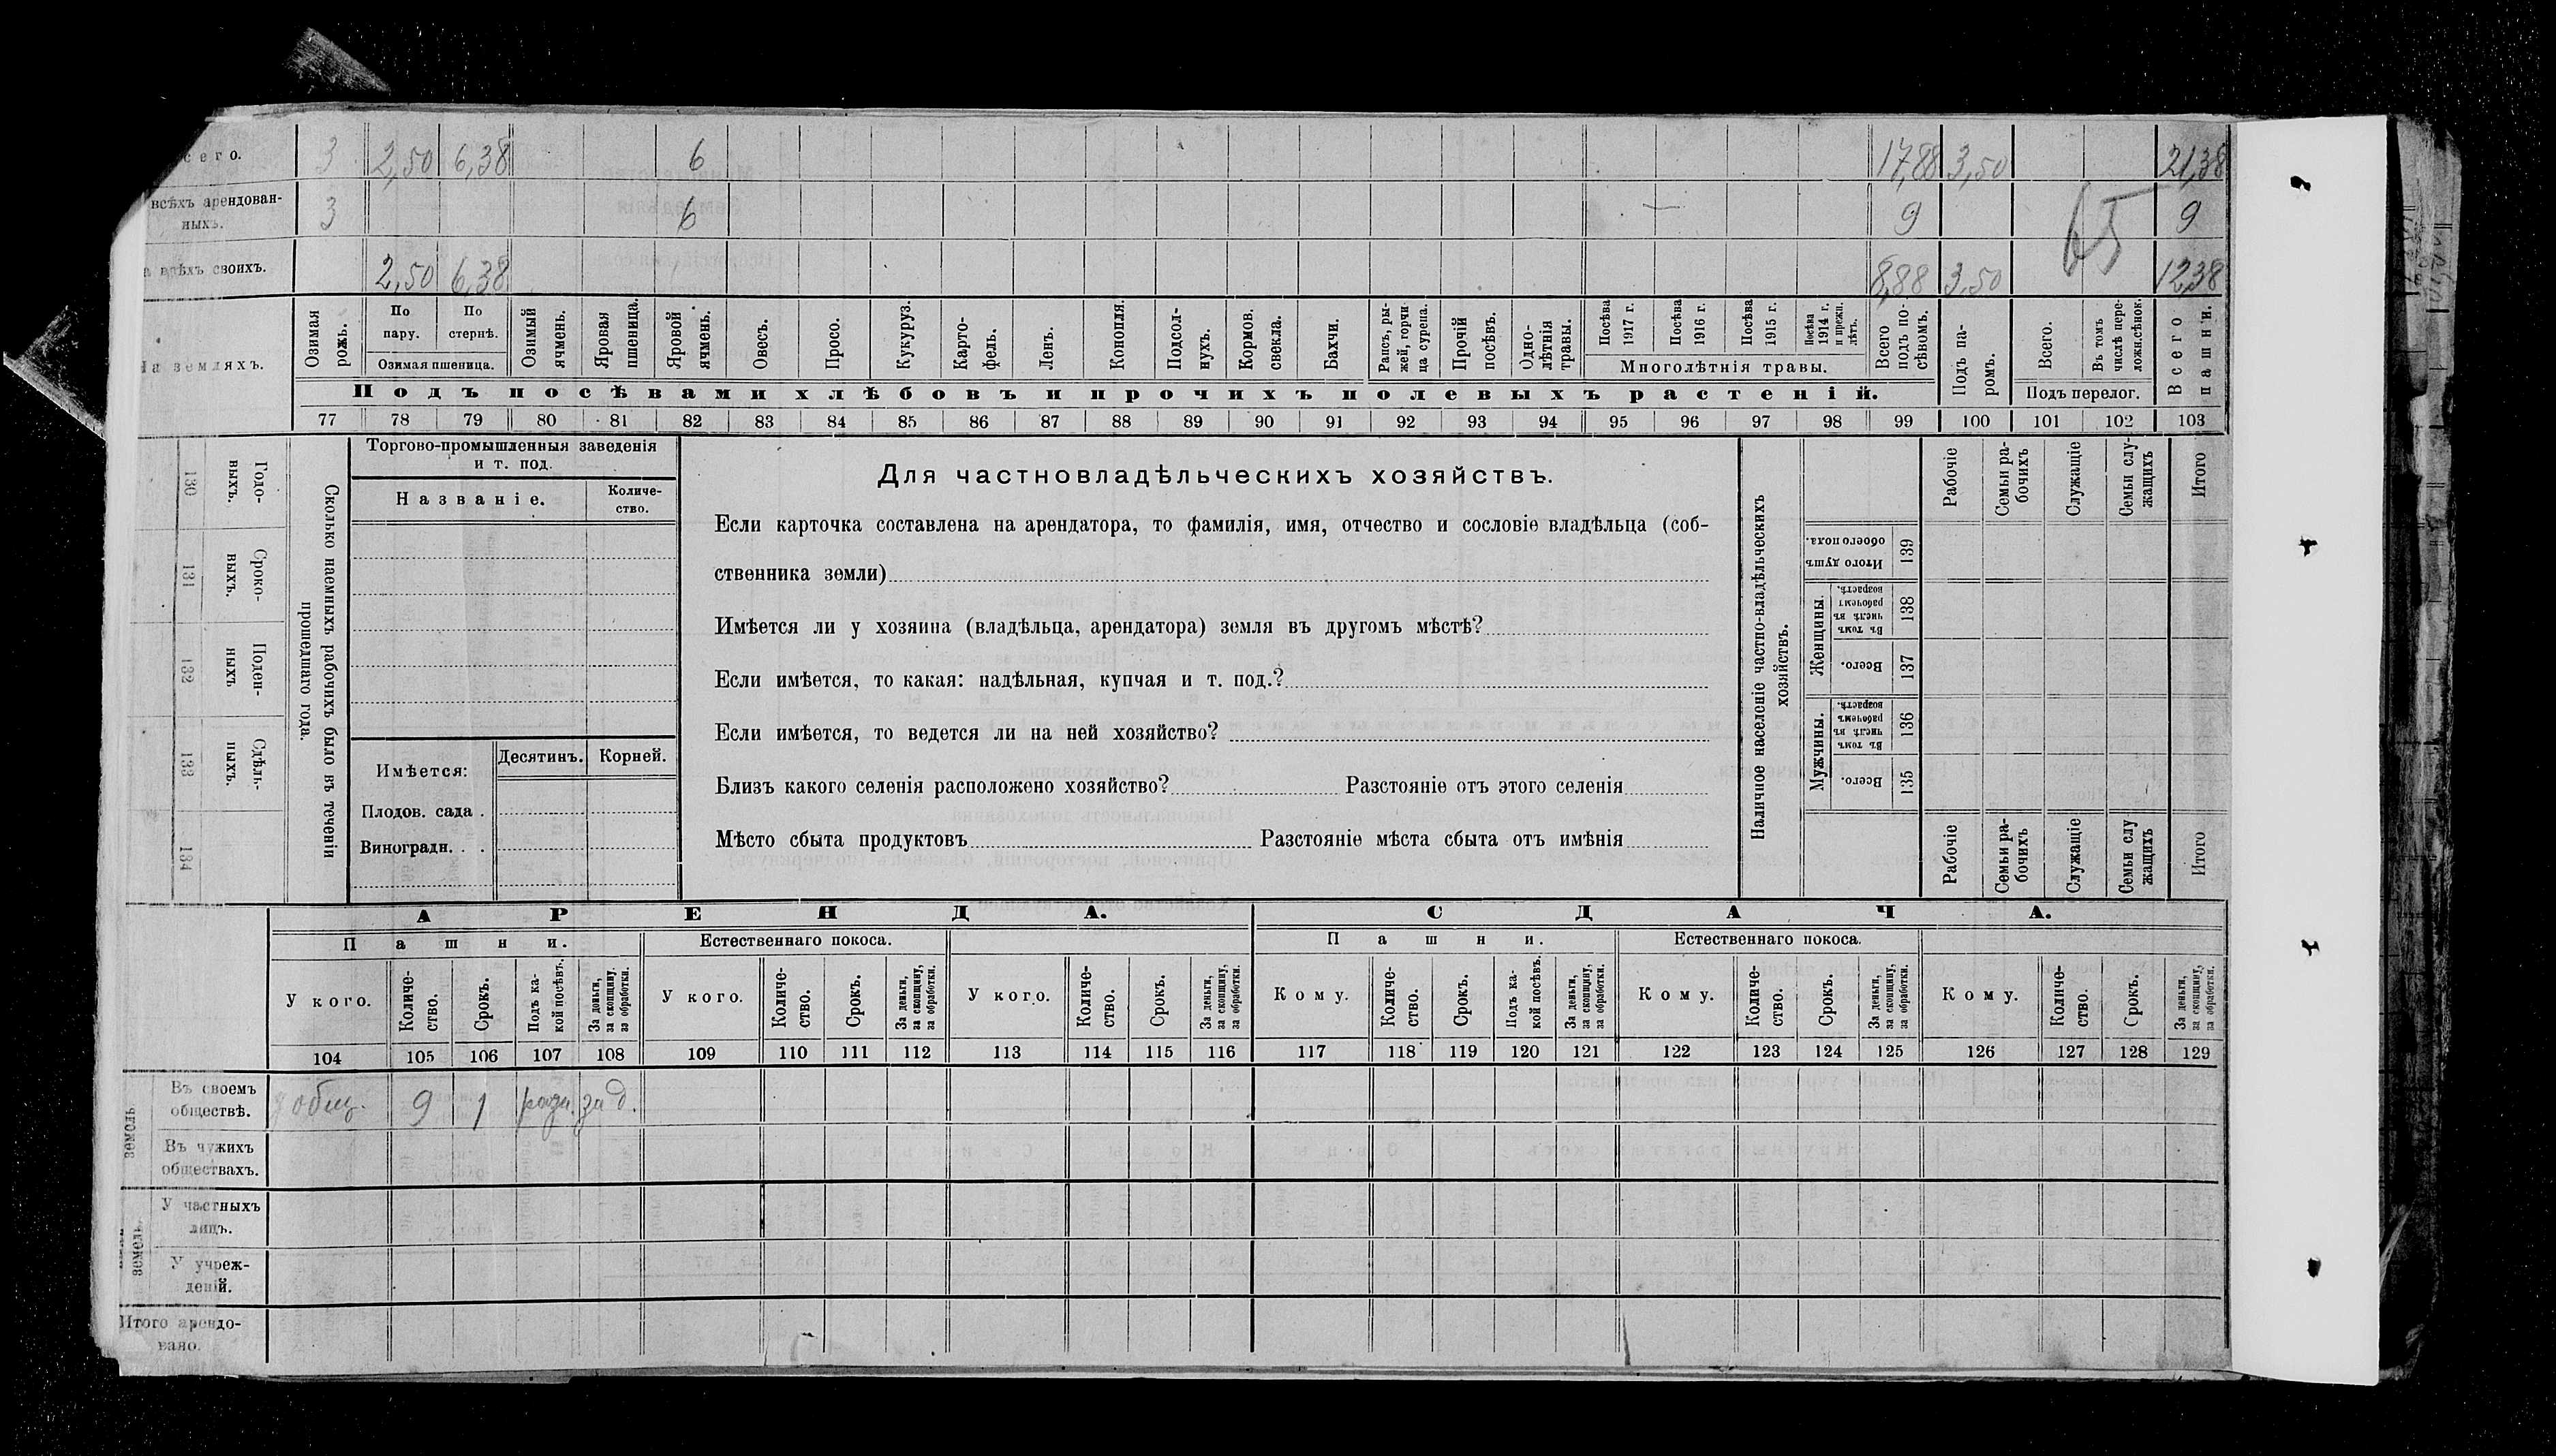 сего. 3 2,50 6,38 6 17,88 3,50 21,38
всѣхъ арендован-
ныхъ. 3 6 9 65 9
всѣхъ своихъ. 2,50 6,38 8,88 3,50 12,38
На земляхъ.
Озимая рожь.
По пару.
По стернѣ.
Озимая пшеница.
Озимый ячмень.
Яровая пшеница.
Яровой ячмень.
Овесъ.
Просо.
Кукуруз.
Карто-
фель.
Ленъ.
Конопля.
Подсол-
нухъ.
Кормов.
свекла.
Бахчи.
Рапсъ, ры-
жей, горчи
ца сурепа.
Прочій
посѣвъ.
Одно-
лѣтнія
травы.
Посѣва
1917 г.
Посѣва
1916 г.
Посѣва
1915 г.
Посѣва
1914 г.
и прежн.
лѣтъ.
Многолѣтнія травы.
Всего
подъ по-
сѣвомъ.
Подъ па-
ромъ.
Всего.
Въ томъ
числѣ пере-
ложн.сѣнок.
Подъ перелог.
Всего
пашни.
Подъ посѣвами хлѣбовъ и прочихъ полевыхъ растеній.
77 78 79 80 81 82 83 84 85 86 87 88 89 90 91 92 93 94 95 96 97 98 99 100 101 102 103
Годо-
выхъ.
130
Сроко-
ныхъ.
131
Поден-
ныхъ
132
Сдѣль-
ныхъ.
133
134
Сколько наемныхъ рабочихъ было въ теченіи
прошедшаго года.
Торгово-промышленныя заведенія
и т. под.
Названіе.
Количе-
ство.
Имѣется:
Десятинъ. Корней.
Плодов. сада .
Виноградн. . .
Для частновладѣльческихъ хозяйствъ.
Если карточка составлена на арендатора, то фамилія, имя, отчество и сословіе владѣльца (соб-
ственника земли)
Имѣется ли у хозяина (владѣльца, арендатора) земля въ другомъ мѣстѣ?
Если имѣется, то какая: надѣльная, купчая и т. под.?
Если имѣется, то ведется ли на ней хозяйство?
Близъ какого селенія расположено хозяйство? Разстояніе отъ этого селенія
Мѣсто сбыта продуктовъ Разстояніе мѣста сбыта отъ имѣнія
Наличное населеніе частно-владѣльческихъ
хозяйствъ.
Рабочіе
Семьи ра-
бочихъ
Служащіе
Семьи слу-
жащихъ
Итого
Итого душъ
обоего пола.
139
Женщины.
Въ томъ
числѣ въ
рабочемъ
возрастѣ.
138
Всего.
137
Мужчины.
Въ томъ
числѣ въ
рабочемъ
возрастѣ.
136
Всего.
135
Рабочіе
Семьи ра-
бочихъ
Служащіе
Семьи слу
жащихъ
Итого
АРЕНДА. СДАЧА.
Пашни. Естественнаго покоса. Пашни. Естественнаго покоса.
У кого.
Количе-
ство.
Срокъ.
Подъ ка-
кой посѣвъ.
За деньги,
за скопщину,
за обработки.
У кого.
Количе-
ство.
Срокъ.
За деньги,
за скопщину,
за обработки.
У кого.
Количе-
ство.
Срокъ.
За деньги,
за скопщину,
за обработки.
Кому.
Количе-
ство.
Срокъ.
Подъ ка-
кой посѣвъ.
За деньги,
за скопщину,
за обработки.
Кому.
Количе-
ство.
Срокъ.
За деньги,
за скопщину,
за обработки.
Кому.
Количе-
ство.
Срокъ.
За деньги,
за скопщину,
за обработки.
104 105 106 107 108 109 110 111 112 113 114 115 116 117 118 119 120 121 122 123 124 125 126 127 128 129
земель
Въ своемъ
обществѣ. у общ. 9 1 разн. за д.
Въ чужихъ
обществахъ.
земель.
У частныхъ
лицъ.
У учреж-
деній.
Итого арендо-
вано.